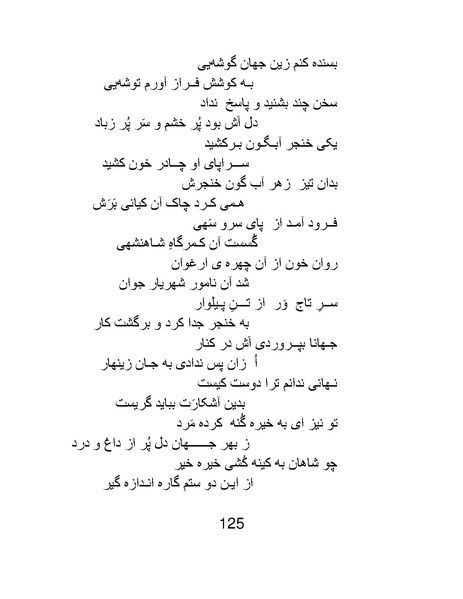 بسنده کنم زین جهان گوشه‌یی
بـه کوشش فـراز آورم توشه‌یی
سخن چند بشنید و پاسخ نداد
دل آش بود پُر خشم و سَر پُر زباد
یکی خنجر آبـگـون بـرکشید
ســراپای او چــادر خون کشید
بدان تیز زهر آب گون خنجرش
هـمی کـرد چاک آن کیانی بَرَش
فـرود آمـد از پای سرو سَهی
گُسست آن کـمرگاهِ شـاهنشهی
روان خون از آن چهره ی ارغوان
شد آن نامور شهریار جوان
سـرِ تاج وَر از تــنِ پـیلوار
به خنجر جدا کرد و برگشت کار
جـهانا بپـروردی آش در کنار
اُ زان پس ندادی به جـان زینهار
نـهانی ندانم ترا دوست کیست
بدین آشکارَت بباید گریست
تو نیز ای به خیره گُنه کرده مَرد
ز بهر جـــــهان دل پُر از داغ و درد
چو شاهان به کینه کُشی خیره خیر
از ایـن دو ستم گاره انـدازه گیر
125